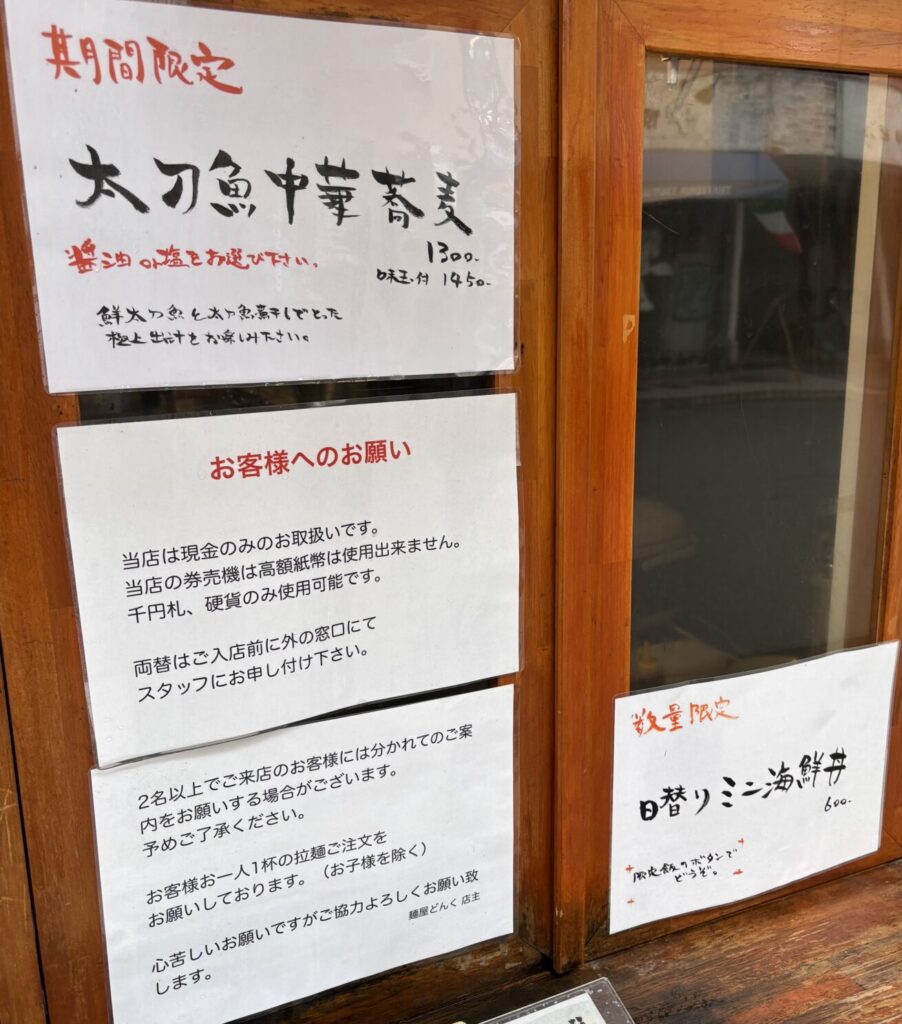 期間限定
太刀魚中華蕎麦
1300-
醤油or塩をお選び下さい。
味玉付 1450-
鮮太刀魚と太刀魚煮干しでとった
極上出汁をお楽しみ下さい。
お客様へのお願い
当店は現金のみのお取扱いです。
当店の券売機は高額紙幣は使用出来ません。
千円札、硬貨のみ使用可能です。
両替はご入店前に外の窓口にて
スタッフにお申し付け下さい。
2名以上でご来店のお客様には分かれてのご案
内をお願いする場合がございます。
予めご了承ください。
お客様お一人1杯の拉麺ご注文を
お願いしております。（お子様を除く）
心苦しいお願いですがご協力よろしくお願い致
します。
麺屋どんく 店主
数量限定
日替りミニ海鮮丼
600-
限定飯のボタンで
どうぞ。